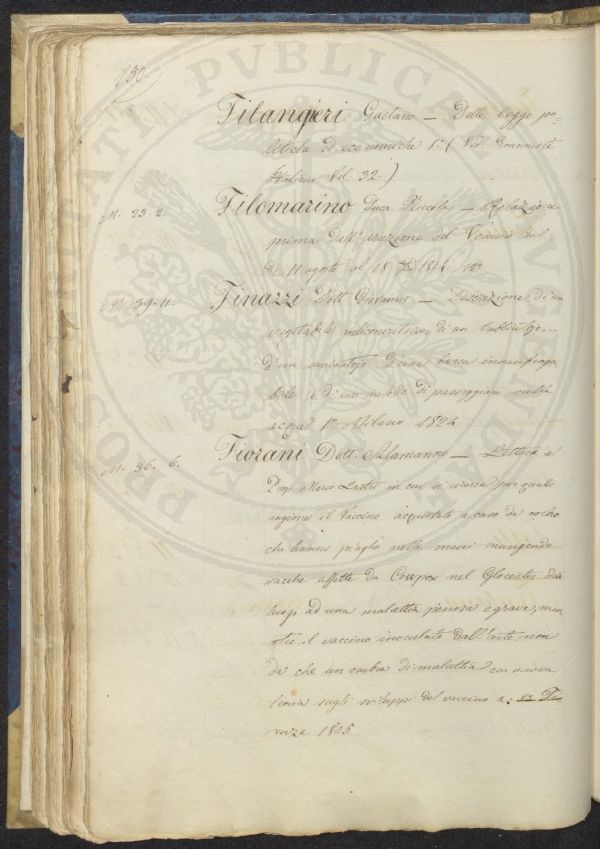 150.
Filangieri Gaetano — Delle Leggi po-
litiche ed economiche 1° ( Vid Economisti
Italiani Vol. 32. )
M. 23. 2. Filomarino Duca Niccola — Relazione
prima dell'eruzione del Vesuvio dal
dì 11 agosto al 18 1814
M. 39. 11. Finazzi Dott Giovanni — Descrizione di un
vegetabile di un
d'un d'una barca
e di un metodo di passeggiare sulla
acqua Milano 1824
M. 36. 6. Fiorani Dott. Alamanno — Lettera a
Prop Marco Lastri in cui si ricerca per qual
ragione il Vaccino acquistato a caso da coloro
che hanno piaghe nelle mani mungendo
vacche affette da Cowpox nel Glocester dia
luogo ad una malattia penosa e grave, men
tre il vaccino inoculato dall'arte non
dà che un ombra di malattia con nuova
teoria sugli sviluppi del vaccino Fi-
renze 1805
PROSPERITATI PUBLICAE AUGENDAE